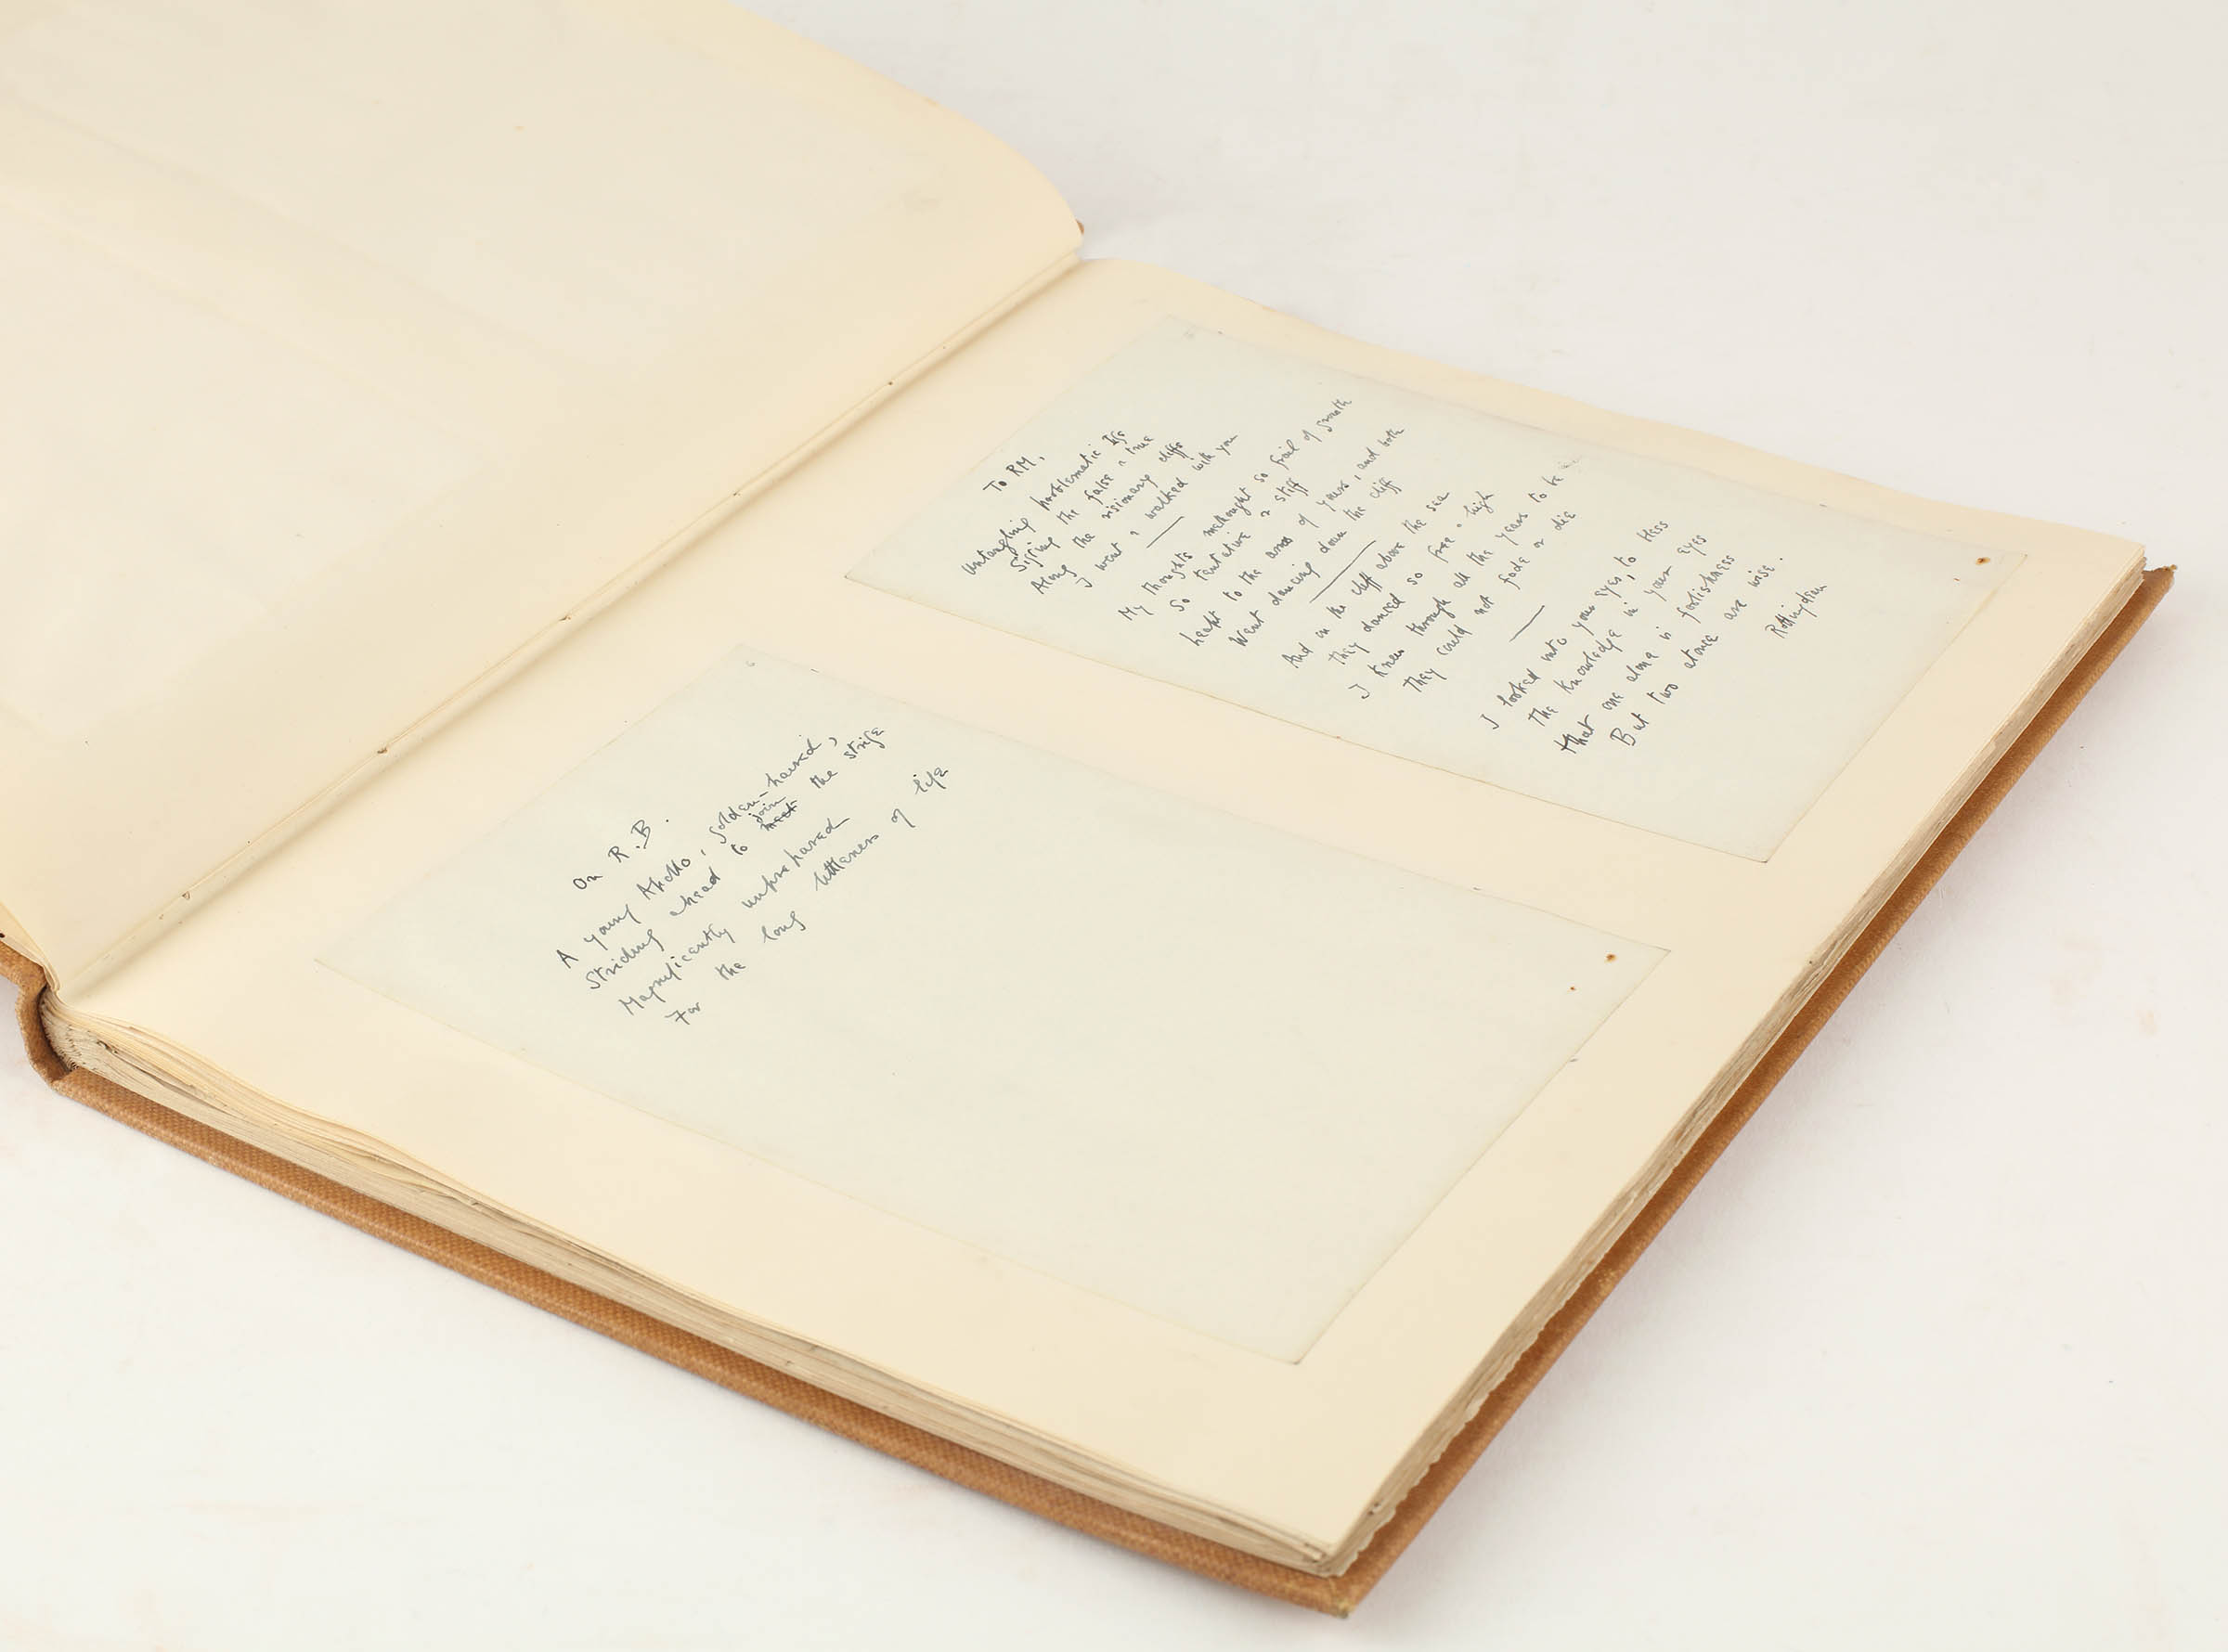 To RM.
Untangling problematic Ifs
Sifting the false & true
Along the visionary cliffs
I went & walked with you
My thoughts methought so frail of growth
So tentative & stiff
Leapt to the arms of yours, and both
Went dancing down the cliff
And on the cliff above the sea
They danced so free & high
I knew through all the years to be
They could not fade or die
I looked into your eyes, to bless
The knowledge in your eyes
That one alone is foolishness
But two are wise.
Rottingdean
On R.B.
A young Apollo, golden-haired,
join
Striding ahead to meet the strife
Magnificently unprepared
For the long littleness of life